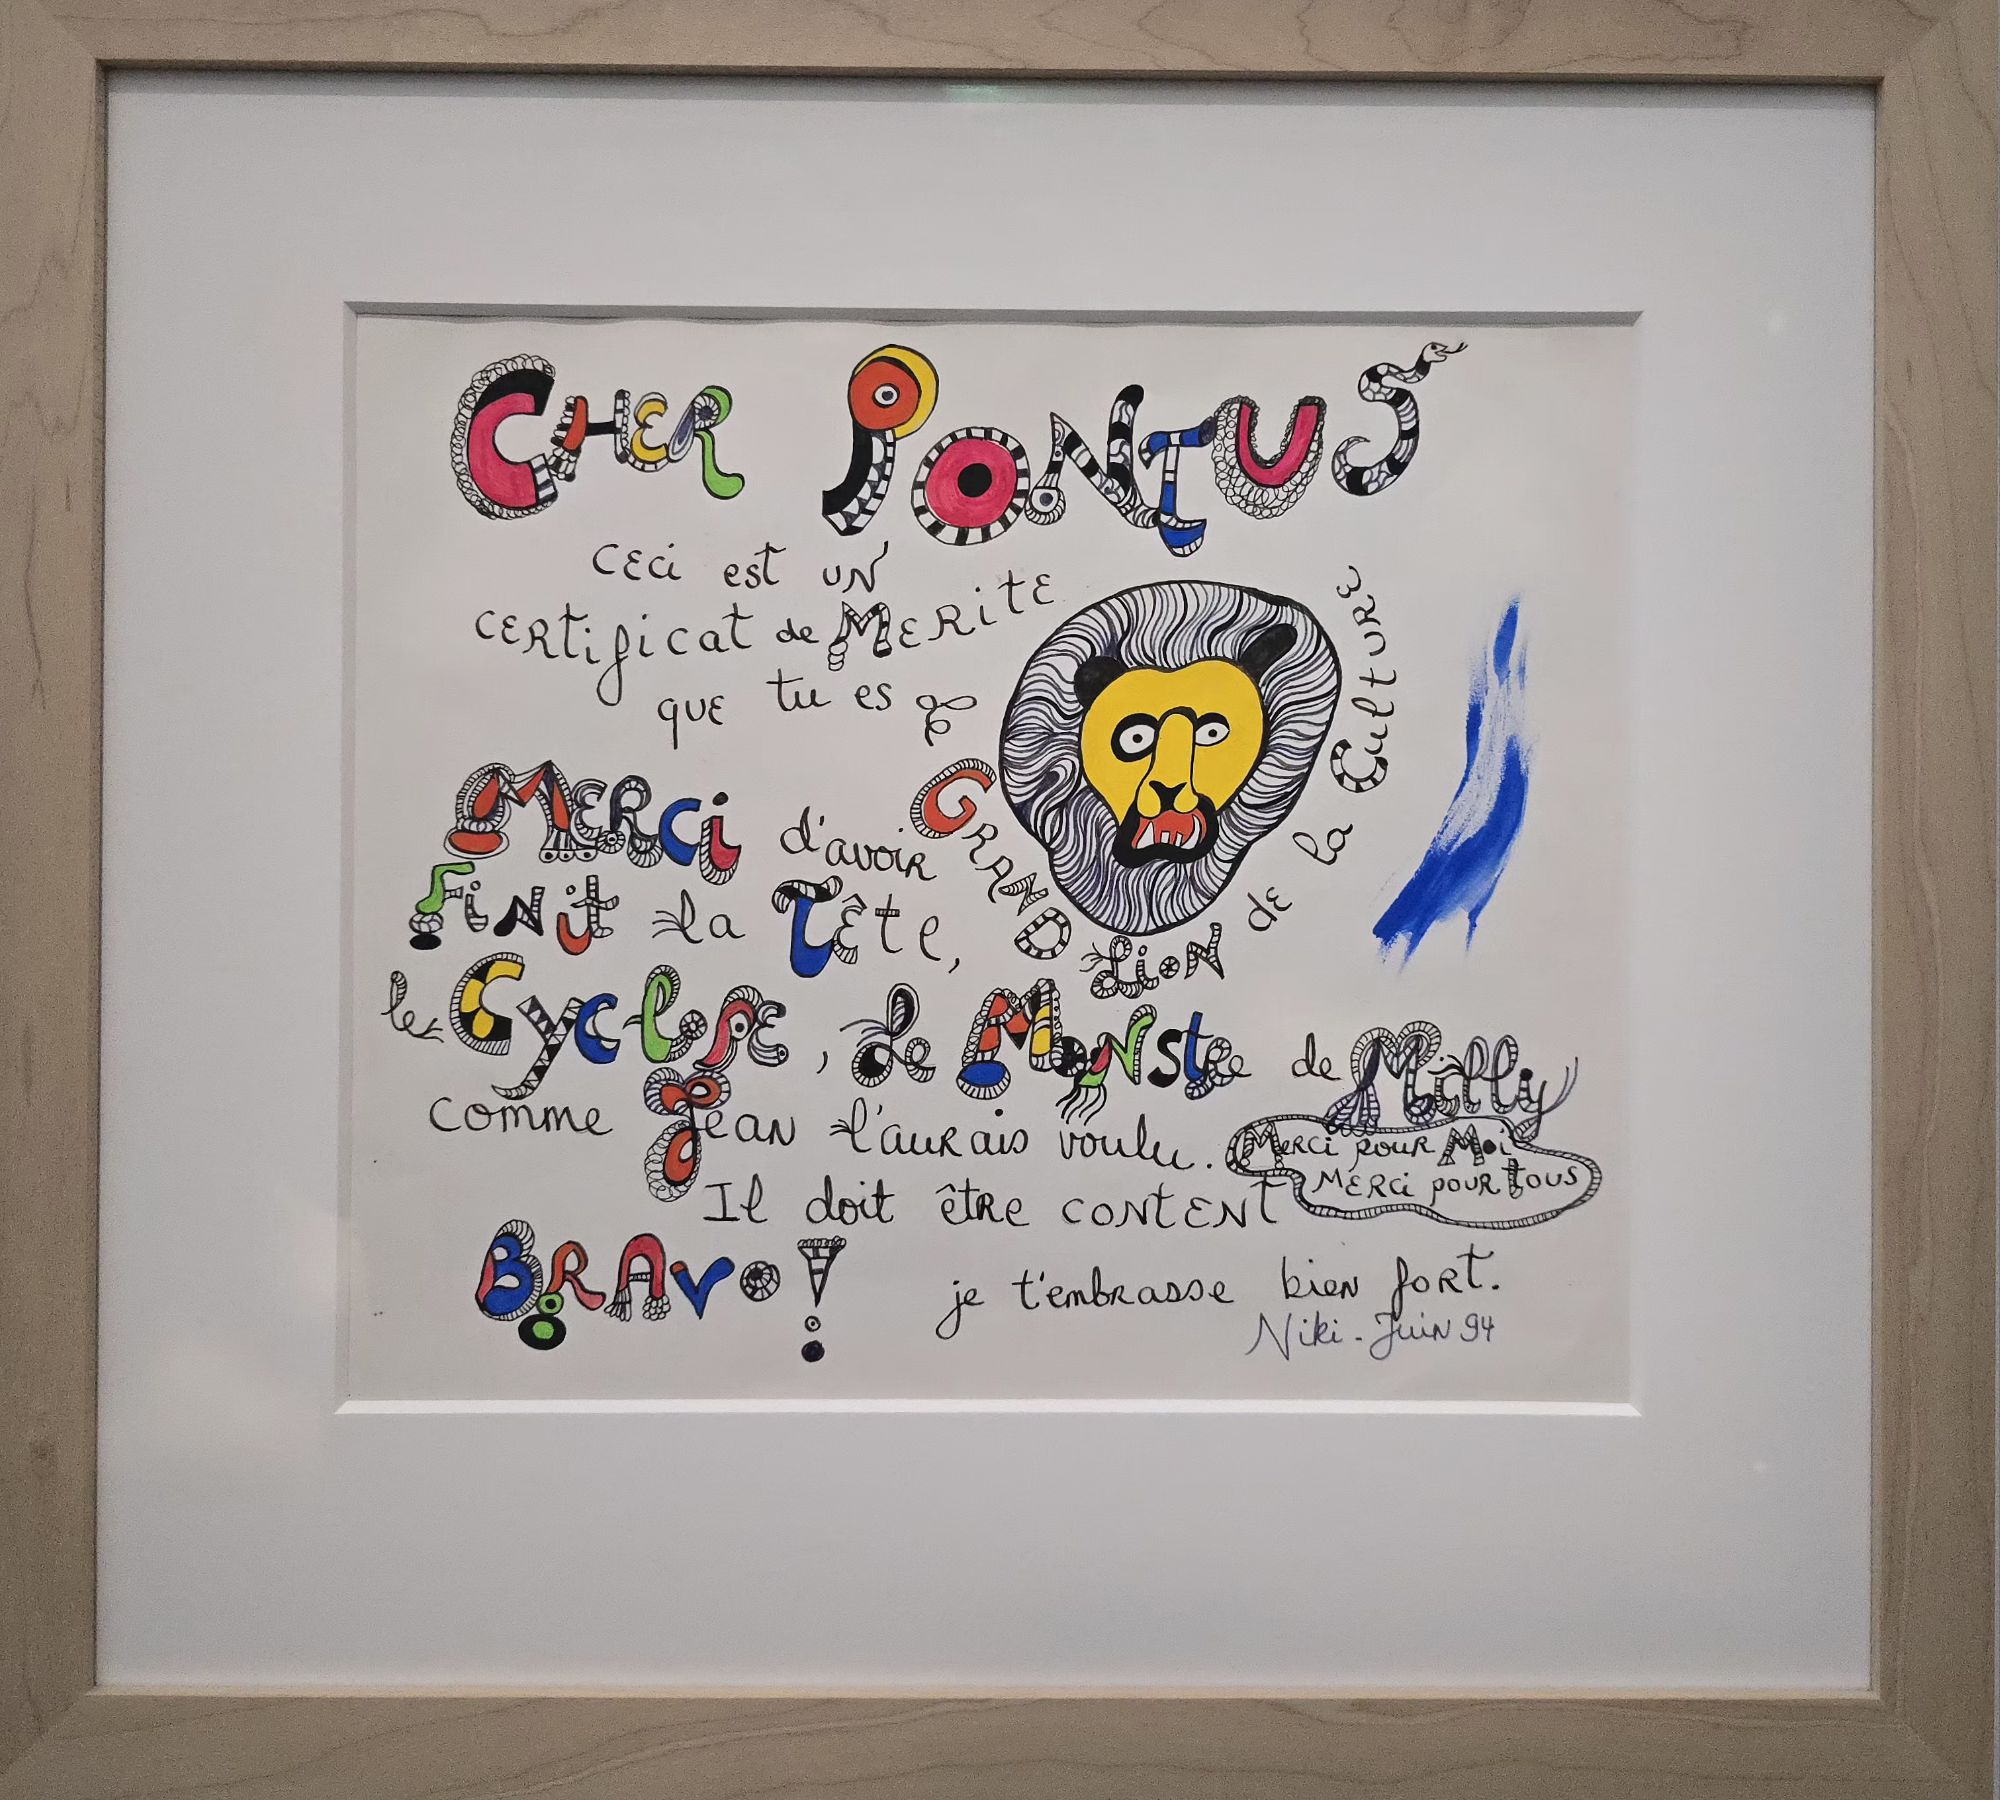 CHER PONTUS
CECi EST UN
CERTificAT de MERiTE
QUE tu es
GRAND LiON DE la CultURE
MERCi d'avoiR
FiNit la TêtE,
le CyclOPE, Le MONStRe de Milly
comme Jean l'auRais voulu.
MERCi pouR Moi
MERCi pouR tous
Il doit êtRE CONTENT
BRAVO!
je t'embRasse bien foRt.
Niki - Juin 94